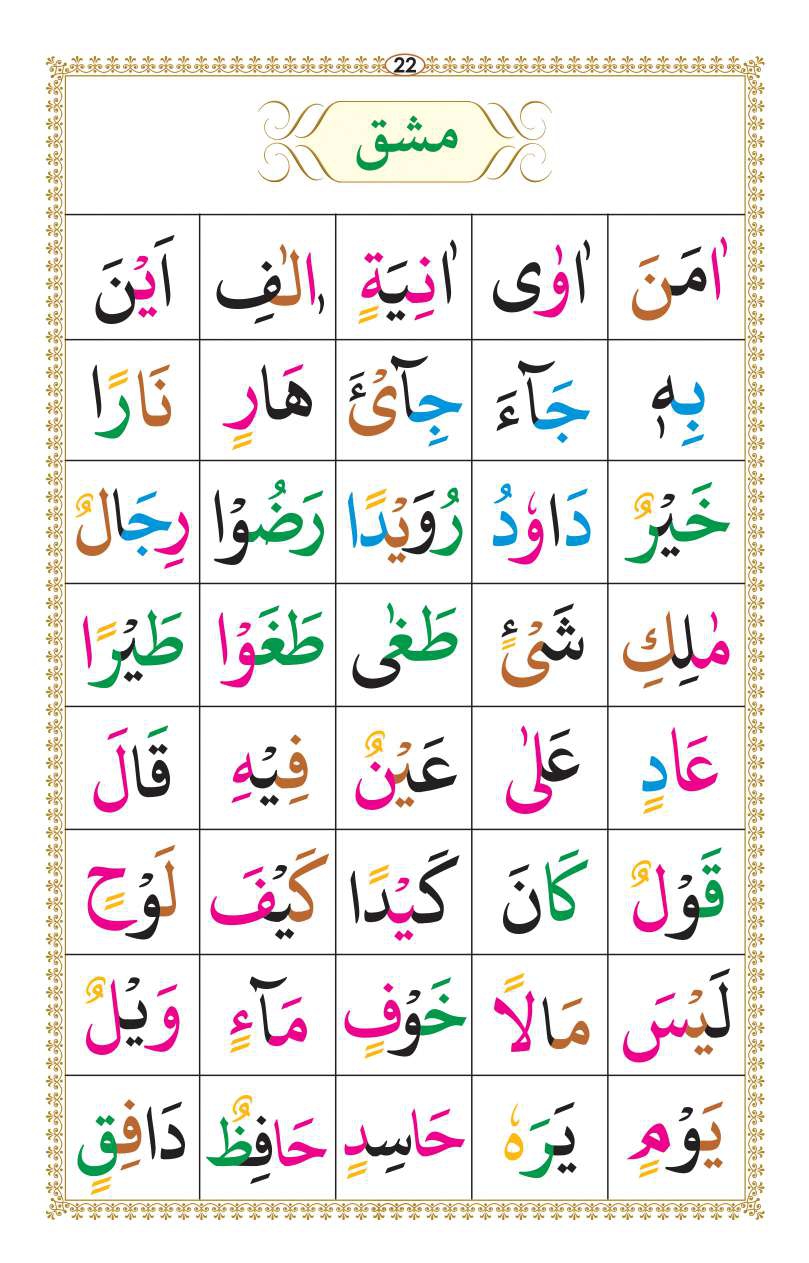 22
مشق
اٰمَنَ اٰوٰى اٰنِيَةٍ اٖلٰفِ اَيْنَ
بِهٖ جَآءَ جِآیْٔءَ هَارٍ نَارًا
خَيْرٌ دَاوٗدُ رُوَيْدًا رَضُوْا رِجَالٌ
مٰلِكِ شَیْءٍ طَغٰى طَغَوْا طَيْرًا
عَادٍ عَلٰى عَيْنٌ فِيْهِ قَالَ
قَوْلٌ كَانَ كَيْدًا كَيْفَ لَوْحٍ
لَيْسَ مَالًا خَوْفٍ مَآءٍ وَيْلٌ
يَوْمٍ يَرَهٗ حَاسِدٍ حَافِظٌ دَافِقٍ